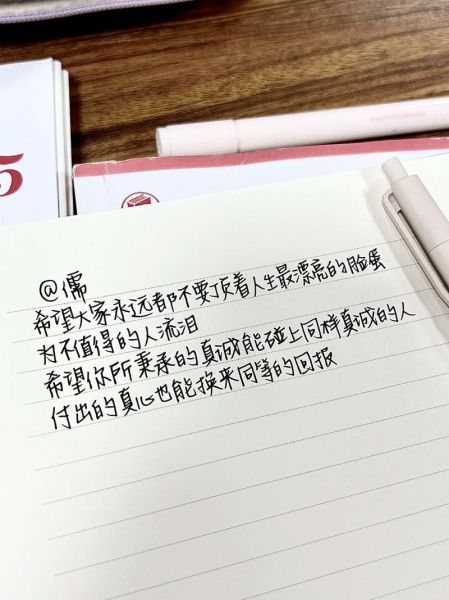 5
@儒
希望大家永远都不要顶着人生最漂亮的脸蛋
为不值得的人流泪
希望你所秉承的真诚能碰上同样真诚的人
付出的真心也能换来同等的回报